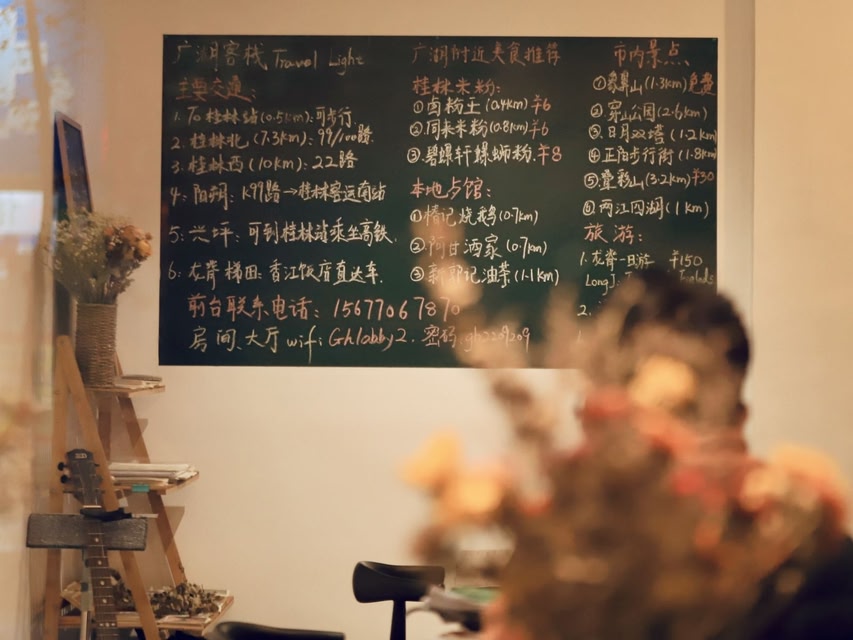 广湖客栈 Travel Light
主要交通:
1. To 桂林站(0.5km):可步行
2. 桂林北(7.3km):99/100路
3. 桂林西(10km):22路
4: 阳朔:K99路→桂林客运南站
5: 兴坪:可到桂林站乘坐高铁.
6: 龙脊梯田:香江饭店直达车.
前台联系电话:15677067870
房间、大厅 wifi: Ghlobby2. 密码:
广湖附近美食推荐
桂林米粉:
①南粉王(0.4km)¥6
②同来米粉(0.8km)¥6
③碧螺轩螺蛳粉.¥8
本地占馆:
①椿记烧鹅(0.7km)
②阿甘酒家(0.7km)
③新郭记油茶(1.1km)
市内景点
①象鼻山(1.3km)免费
②穿山公园(2.6km)
③日月双塔(1.2km)
④正阳步行街(1.8km)
⑤叠彩山(3.2km)¥30
⑥两江四湖(1km)
旅游:
1.龙脊一日游 ¥150
Long
2.